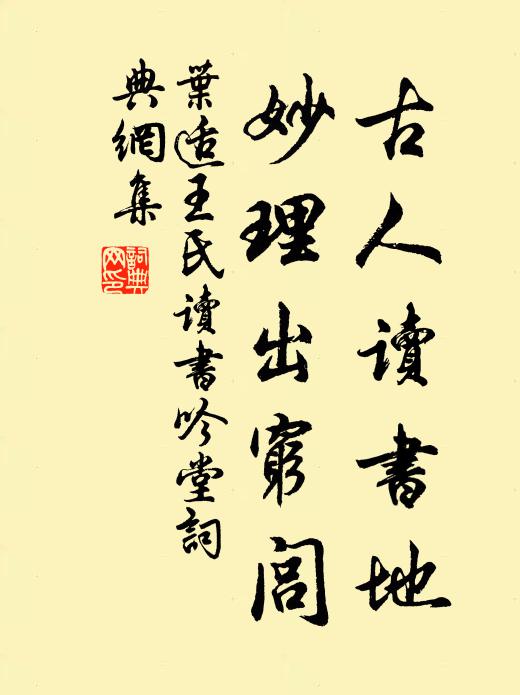 古人讀書地
妙理出窮閻
葉适王氏讀書吟堂詞
典網集
詞典
网印